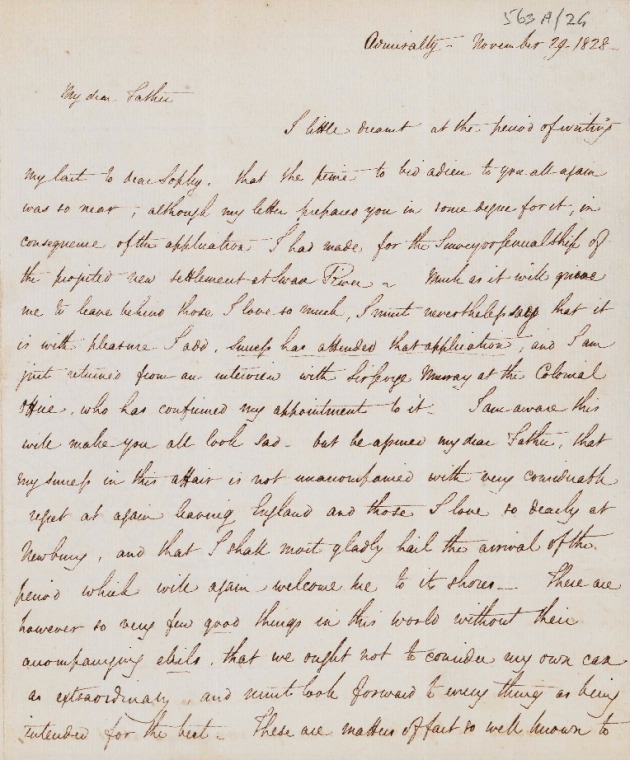 563A/26
Admiralty - November 29. 1828 -
My dear Father
I little dreamt at the period of writing
my last to dear Sophy, that the time to bid adieu to you all again
was so near; although my letter prepared you in some degree for it, in
consequence of the application I had made for the Surveyor Generalship of
the projected new settlement at Swan River - Much as it will grieve
me to leave behind those I love so much, I must nevertheless say that it
is with pleasure I add, success has attended that application, and I am
just returned from an interview with Sir George Murray at the Colonial
Office, who has confirmed my appointment to it - I am aware this
will make you all look sad - but be assured my dear Father, that
my success in this affair is not unaccompanied with very considerable
regret at again leaving England and those I love so dearly at
Newbury, and that I shall most gladly hail the arrival of the
period which will again welcome me to it shores - There are
however so very few good things in this world without their
accompanying evils, that we ought not to consider my own case
as extraordinary, and must look forward to every thing as being
intended for the best - These are matters of fact so well known to